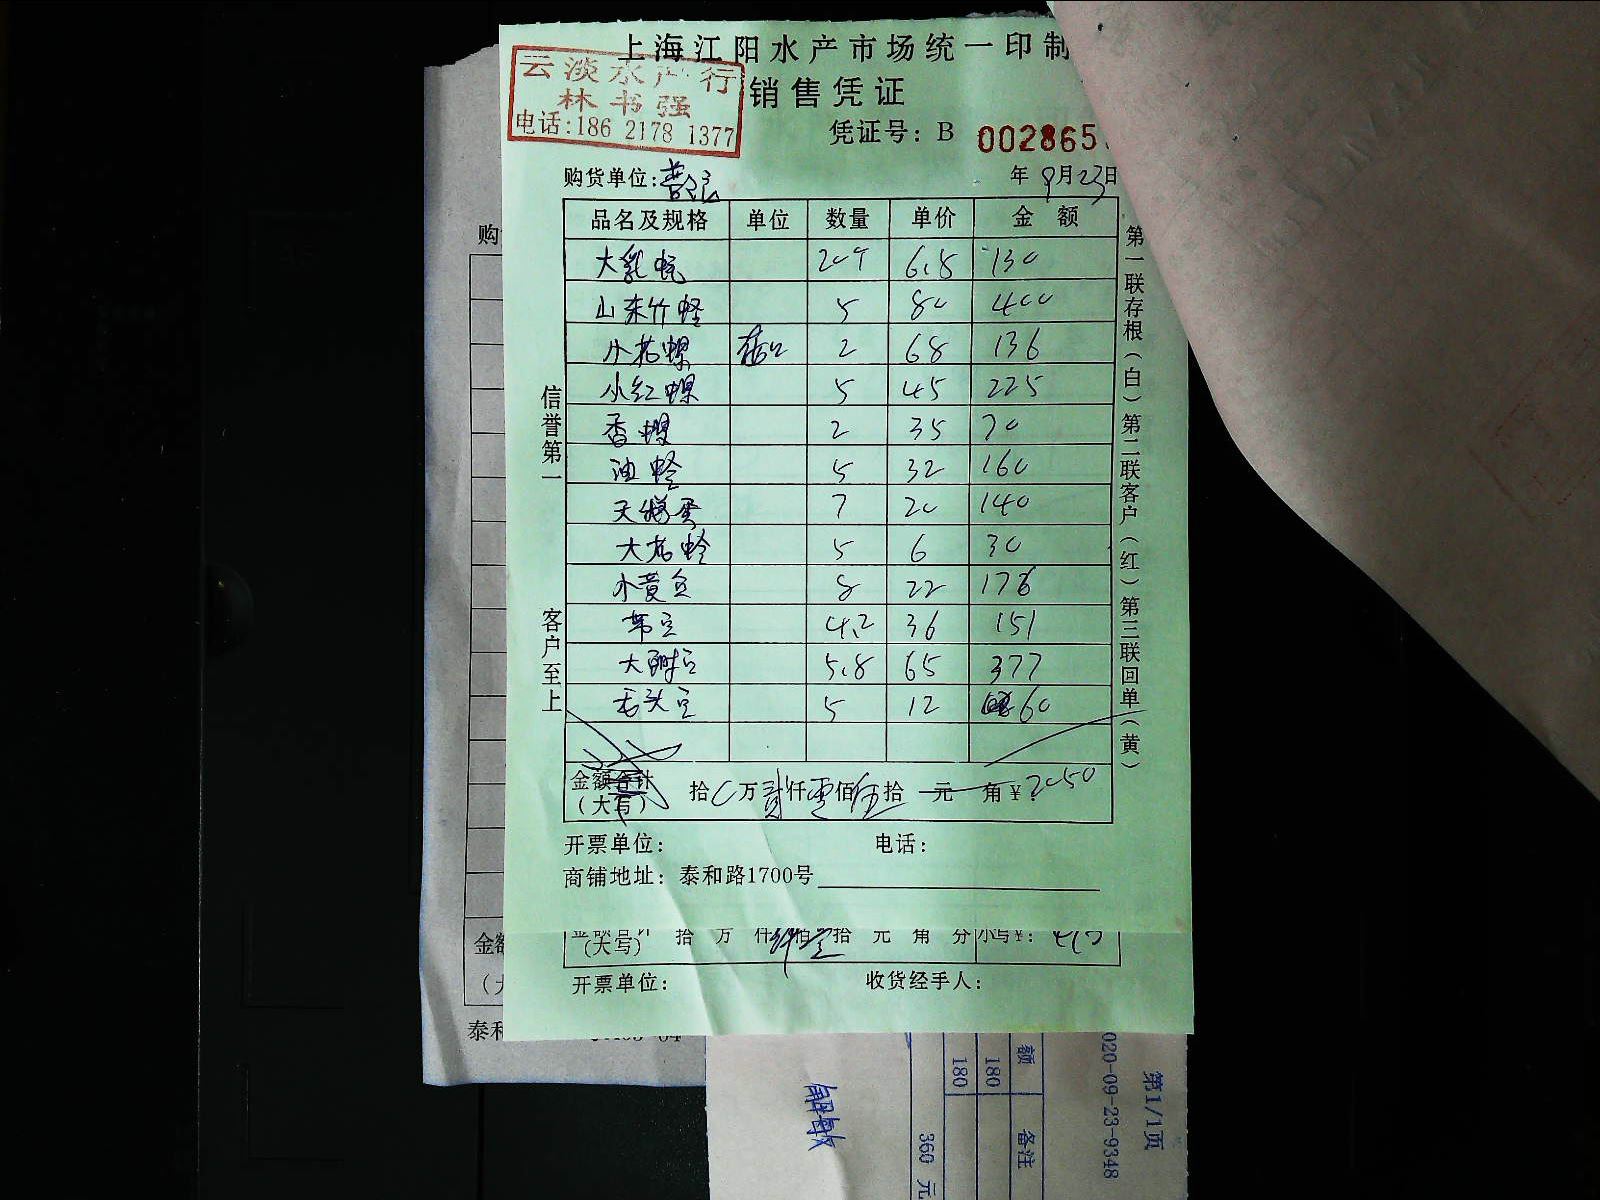 上海江阳水产市场统一印制
云淡水产行
林书强
电话:186 2178 1377
销售凭证
凭证号: B 002865
购货单位:
年 9月23日
品名及规格 单位 数量 单价 金 额
大乳蚝 20个 6.5 130
山东竹蛏 5 80 400
小花螺 2 68 136
小红螺 5 45 225
香螺 2 35 70
油蛤 5 32 160
天鹅蛋 7 20 140
大花蛤 5 6 30
小黄鱼 8 22 176
带鱼 4.2 36 151
大 5.8 65 377
5 12 60
金额合计
(大写) 拾 万贰仟零佰伍拾 元 角¥:2050
开票单位: 电话:
商铺地址: 泰和路1700号
信誉第一
客户至上
第一联存根(白)第二联客户(红)第三联回单(黄)
金额合计
(大写) 拾 万 仟 佰 拾 元 角 分 小写¥:
开票单位: 收货经手人:
购
金额
泰和
第1/1页
020-09-23-9348
额 备注
180
180
360 元